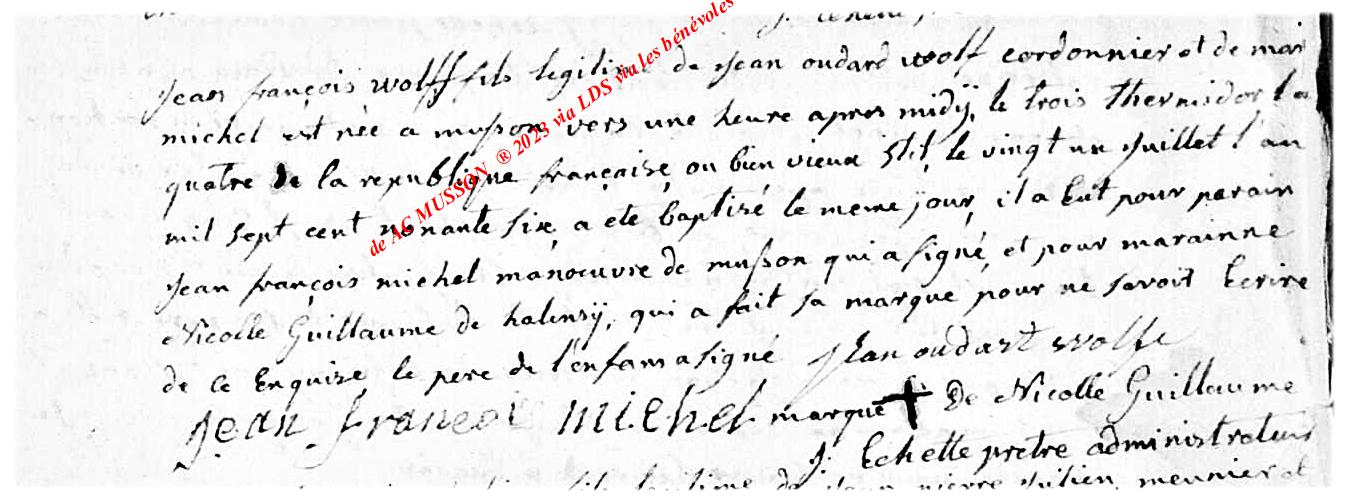 jean françois wolff fils legitime de jean oudard wolff cordonnier et de mar
michel est née a musson vers une heure apres midÿ, le trois thermidor l'a
quatre de la republique française, ou bien vieux stil, le vingt un juillet l'an
mil sept cent nonante six, a ete baptisé le meme jour, il a Eut pour parain
jean françois michel manoeuvre de musson qui a signé, et pour marainne
Nicolle Guillaume de halensÿ, qui a fait sa marque pour ne savoit Ecrire
de ce Enquise le pere de l'enfant a signé jean oudart wolffe
jean françois michel marque + De Nicolle Guillaume
J. Echette pretre administrateur
de jean pierre julien, meunier et
de AG MUSSON ® 2023 via LDS via les bénévoles